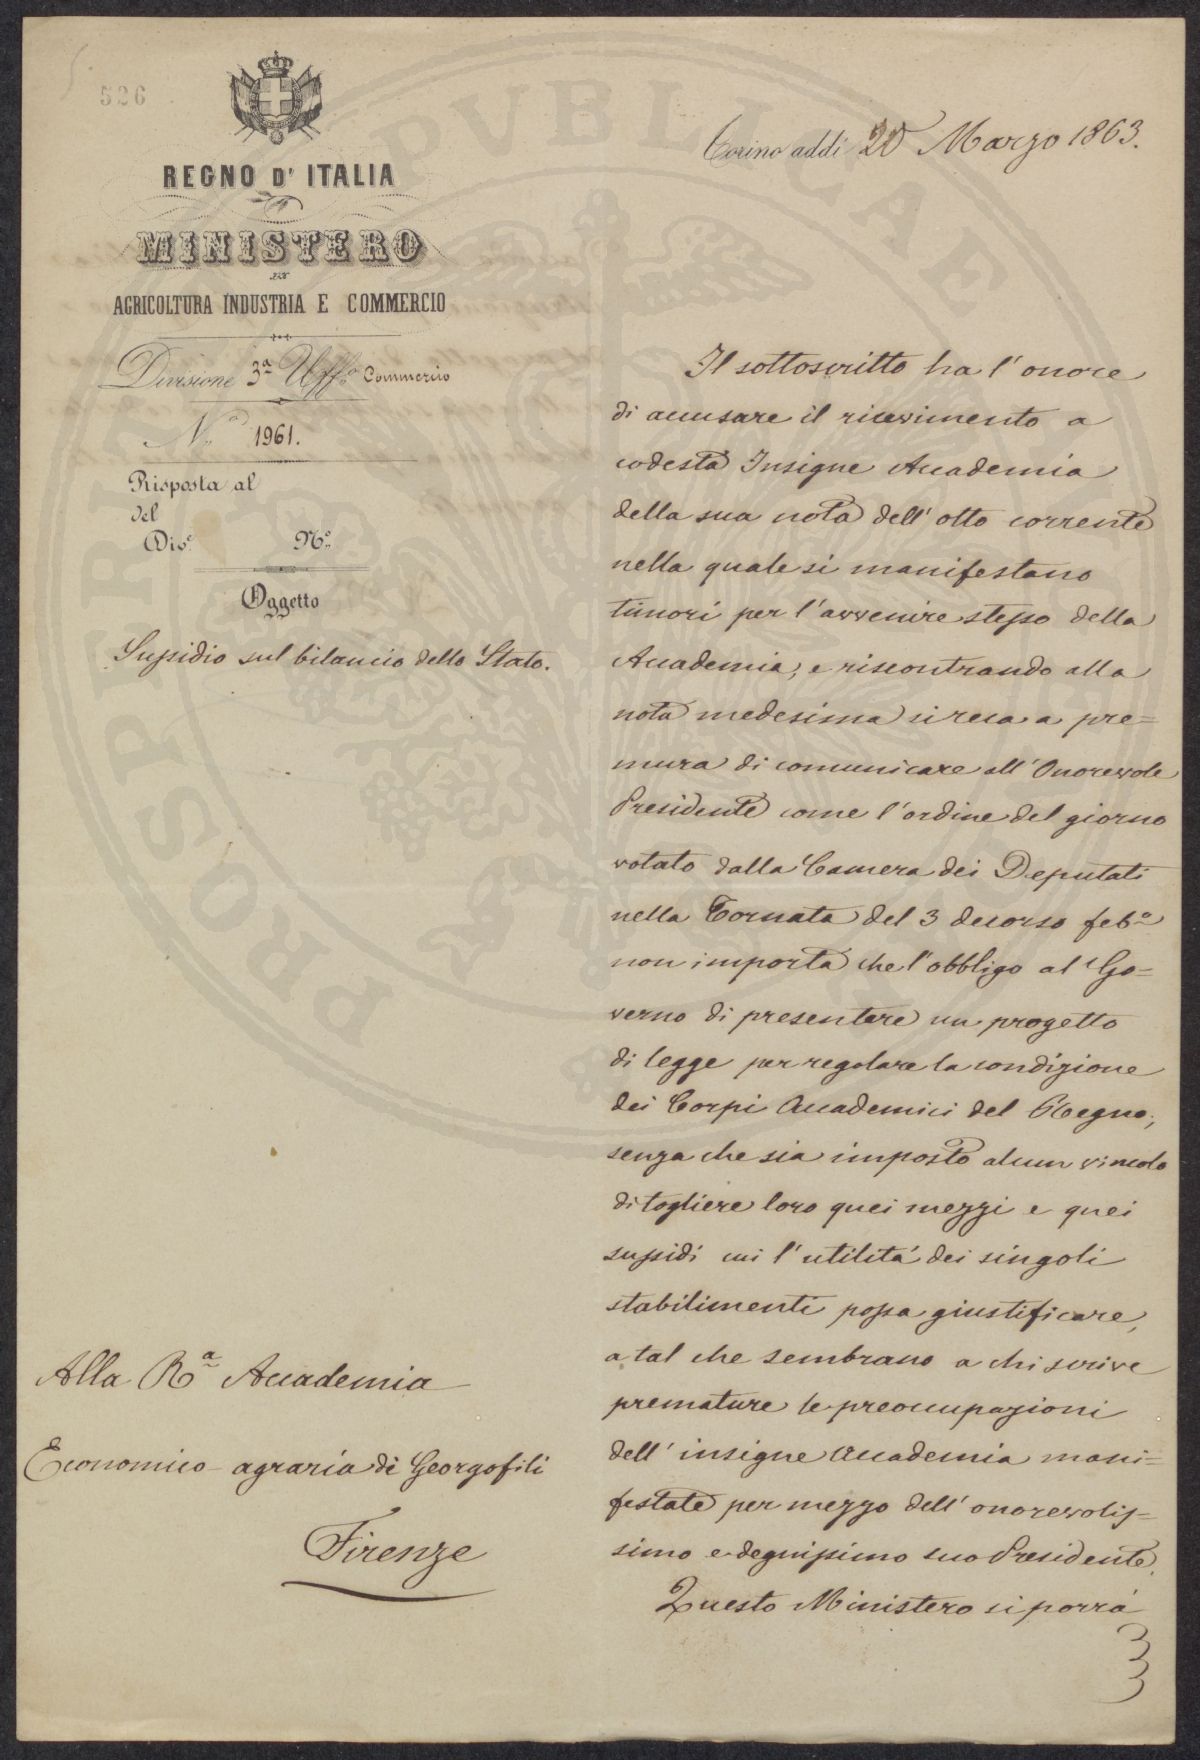 526
REGNO D' ITALIA
MINISTERO
PER
AGRICOLTURA INDUSTRIA E COMMERCIO
Divisione 3ª Uffo Commercio
N.o 1961.
Risposta al
del
Div.e No.
Oggetto
Sussidio sul bilancio dello Stato.
Torino addì 20 Marzo 1863.
Il sottoscritto ha l'onore
di accusare il ricevimento a
codesta Insigne Accademia
della sua nota dell'otto corrente
nella quale si manifestano
timori per l'avvenire stesso della
Accademia, e riscontrando alla
nota medesima si reca a pre=
mura di comunicare all'Onorevole
Presidente come l'ordine del giorno
votato dalla Camera dei Deputati
nella Tornata del 3 decorso feb.o
non importa che l'obbligo al Go=
verno di presentare un progetto
di legge per regolare la condizione
dei Corpi Accademici del Regno,
senza che sia imposto alcun vincolo
di togliere loro quei mezzi e quei
sussidi cui l'utilità dei singoli
stabilimenti possa giustificare,
a tal che sembrano a chi scrive
premature le preoccupazioni
dell'insigne Accademia mani=
festate per mezzo dell'onorevolis=
simo e degnissimo suo Presidente.
Questo Ministero si porrà
Alla R.a Accademia
Economico-agraria di Georgofili
Firenze
PROSPERITATI PUBLICAE